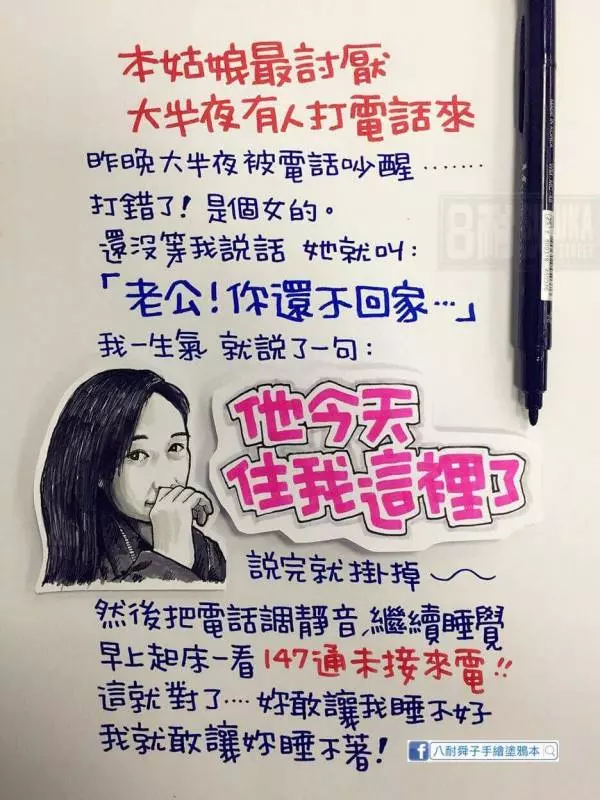 本姑娘最討厭
大半夜有人打電話來
昨晚大半夜被電話吵醒‥‥‥‥
打錯了! 是個女的。
還沒等我說話 她就叫:
「老公!你還不回家…」
我一生氣 就說了一句:
他今天
住我這裡了
說完就掛掉～
然後把電話調靜音,繼續睡覺
早上起床一看 147通未接來電!!
這就對了‥‥ 妳敢讓我睡不好
我就敢讓妳睡不著!
八耐舜子手繪塗鴉本